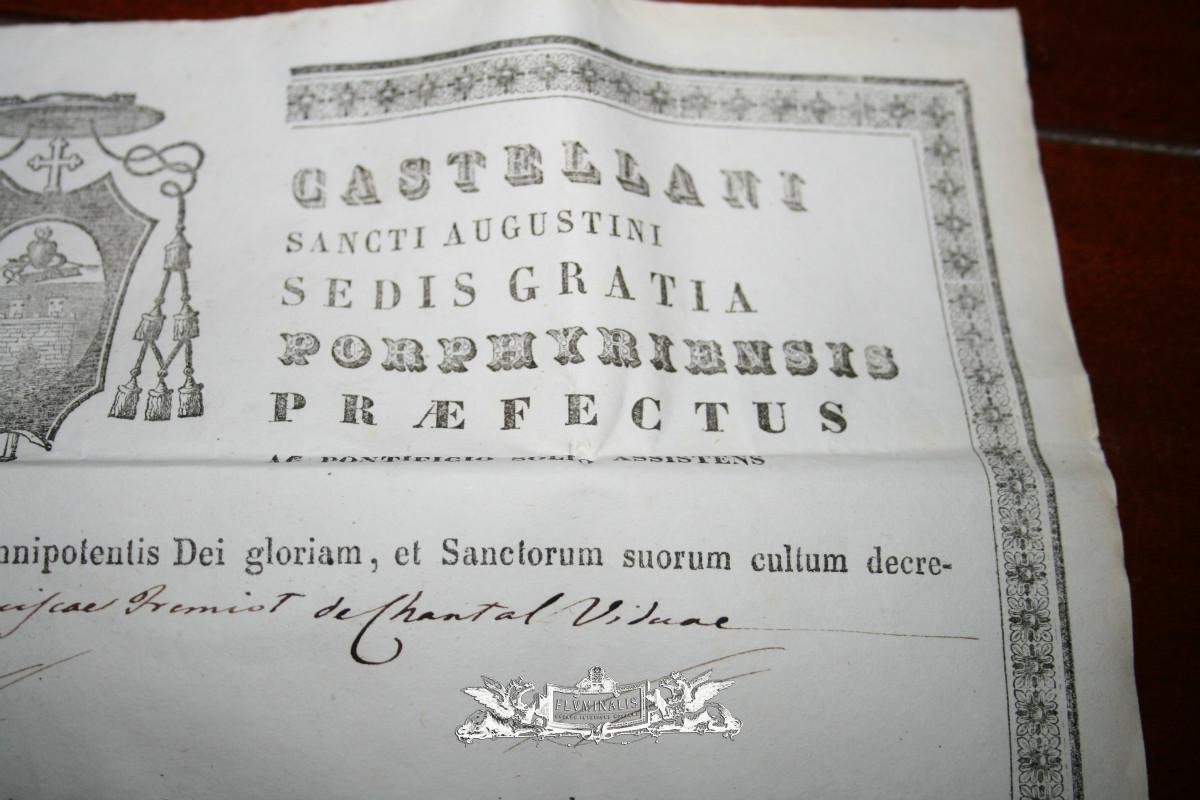 CASTELLANI
SANCTI AUGUSTINI
SEDIS GRATIA
PORPHYRIENSIS
PRÆFECTUS
AC PONTIFICIO SOLIO ASSISTENS
mnipotentis Dei gloriam, et Sanctorum suorum cultum decre-
ciscae Fremiot de Chantal Viduae
FLVMINALIS